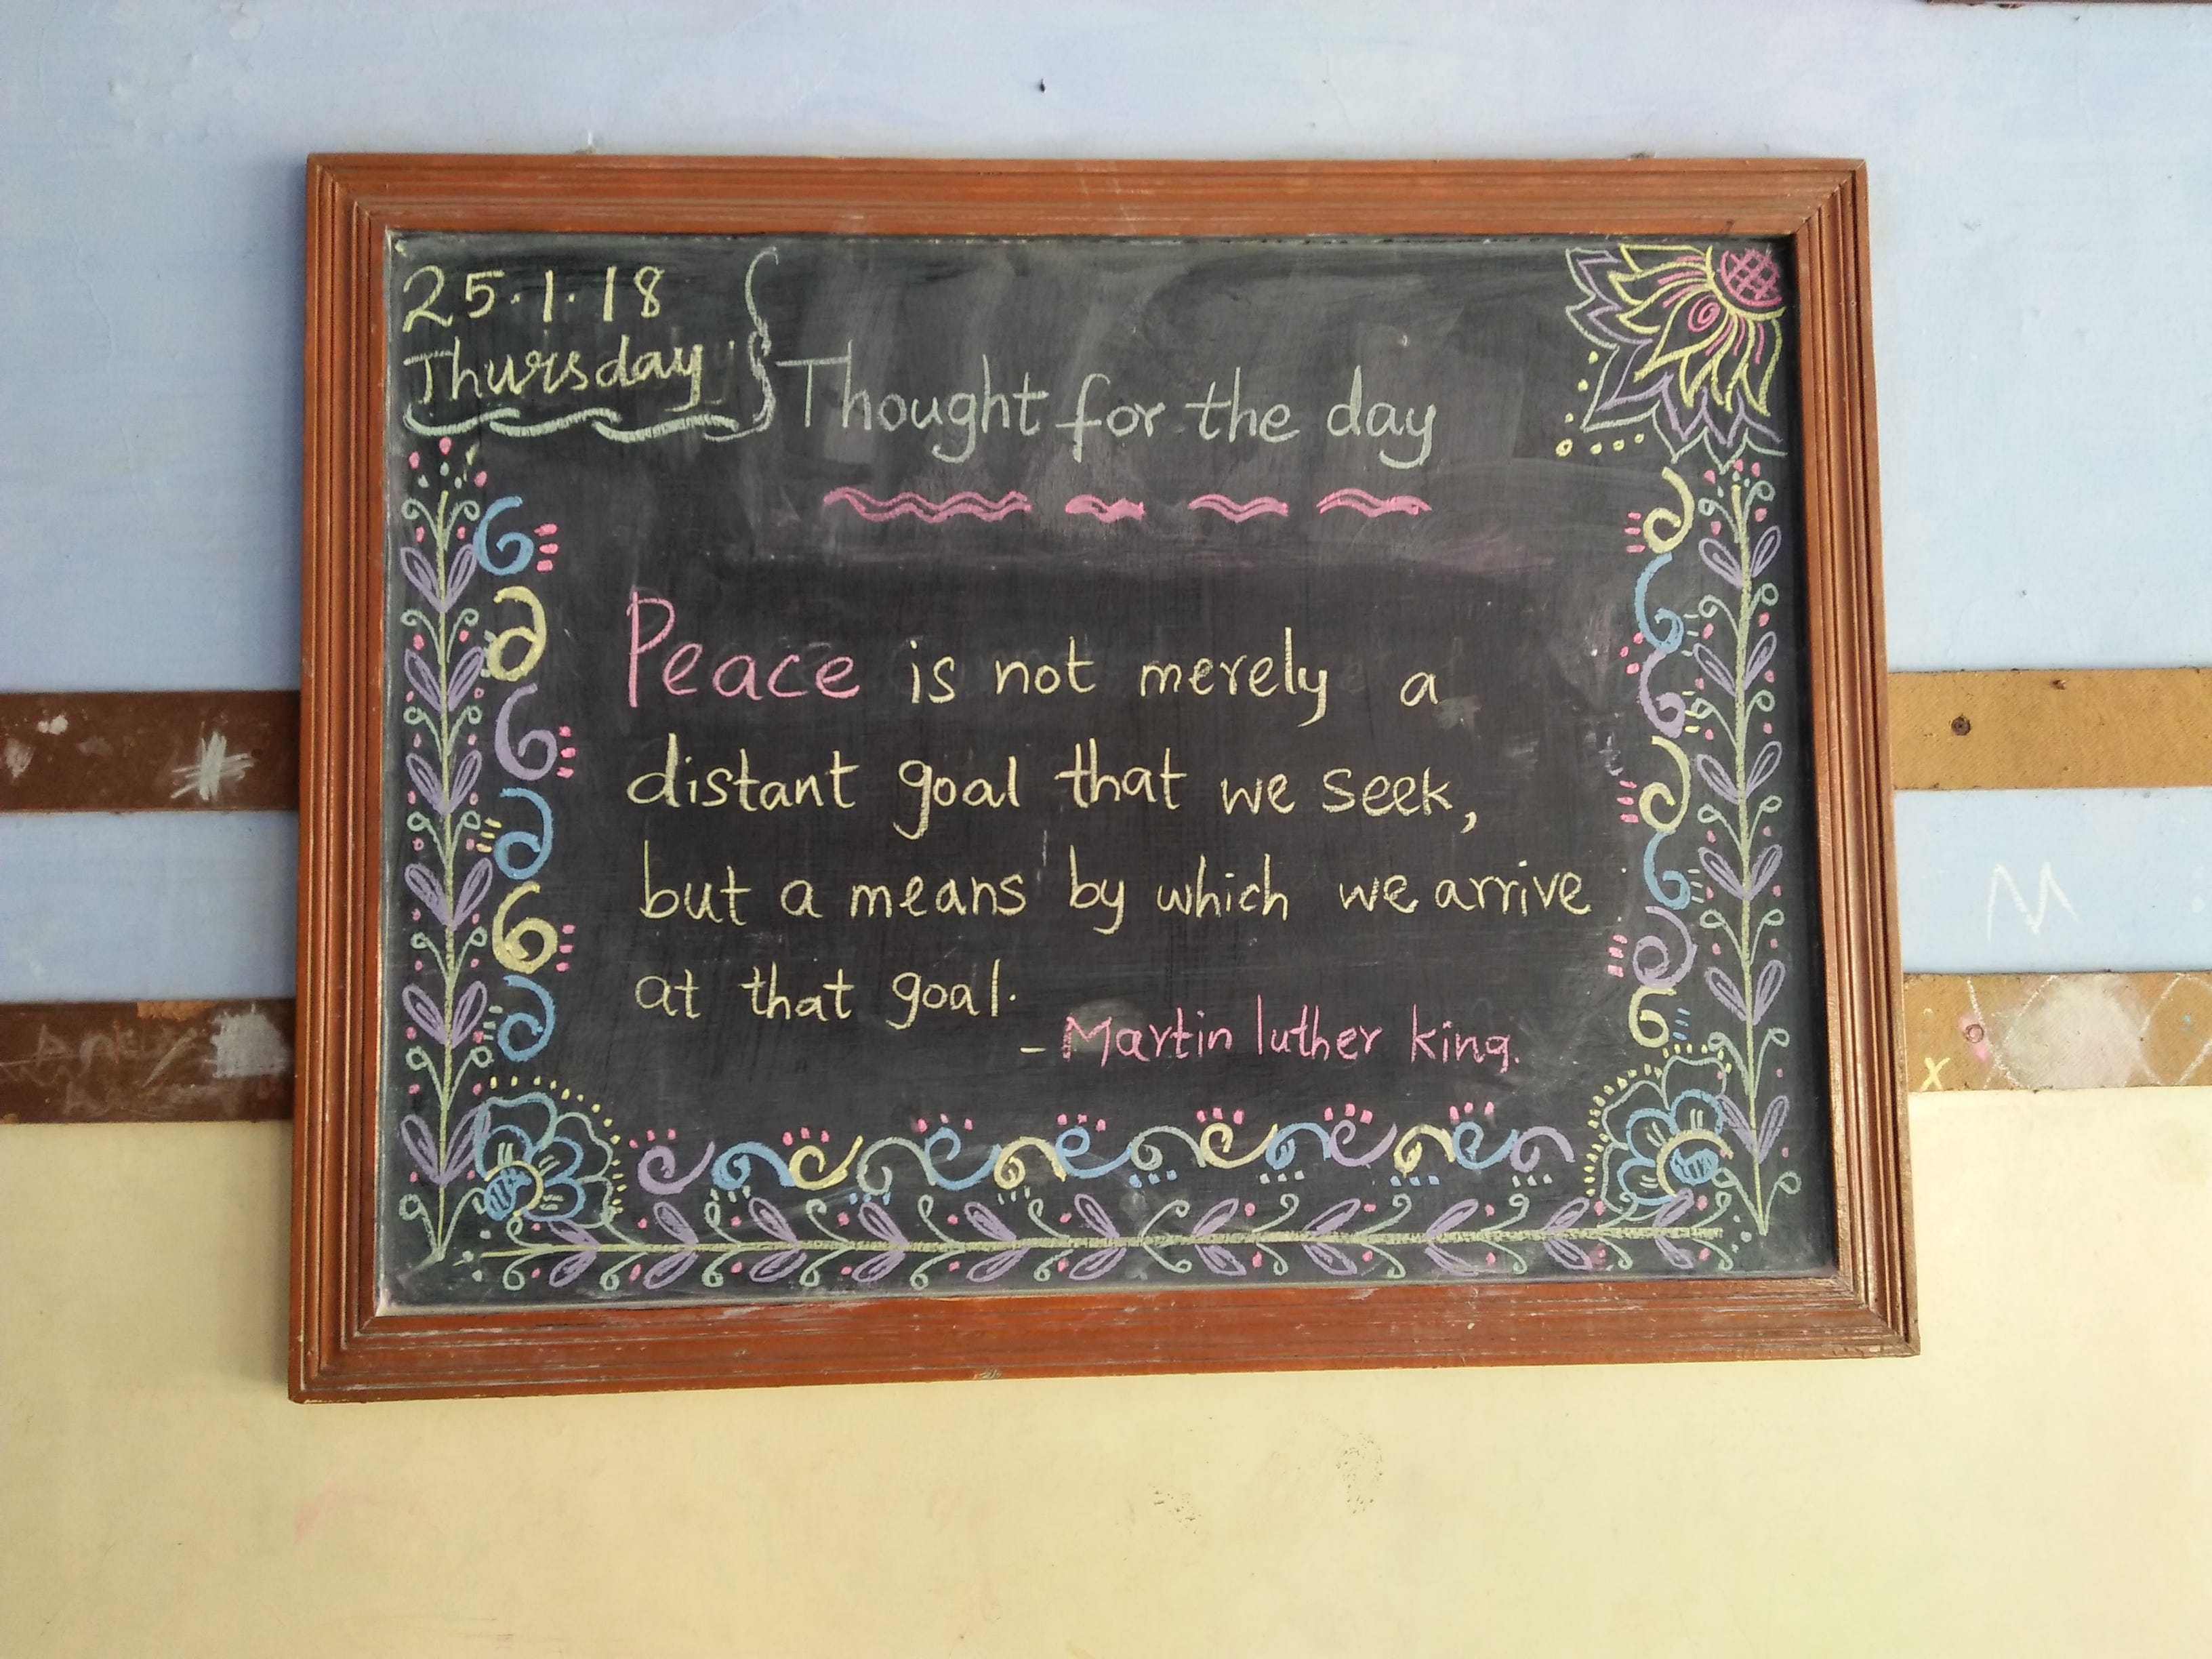 25.1.18
Thursday
Thought for the day
Peace is not merely a
distant goal that we seek,
but a means by which we arrive
at that goal.
- Martin luther king.
M
x